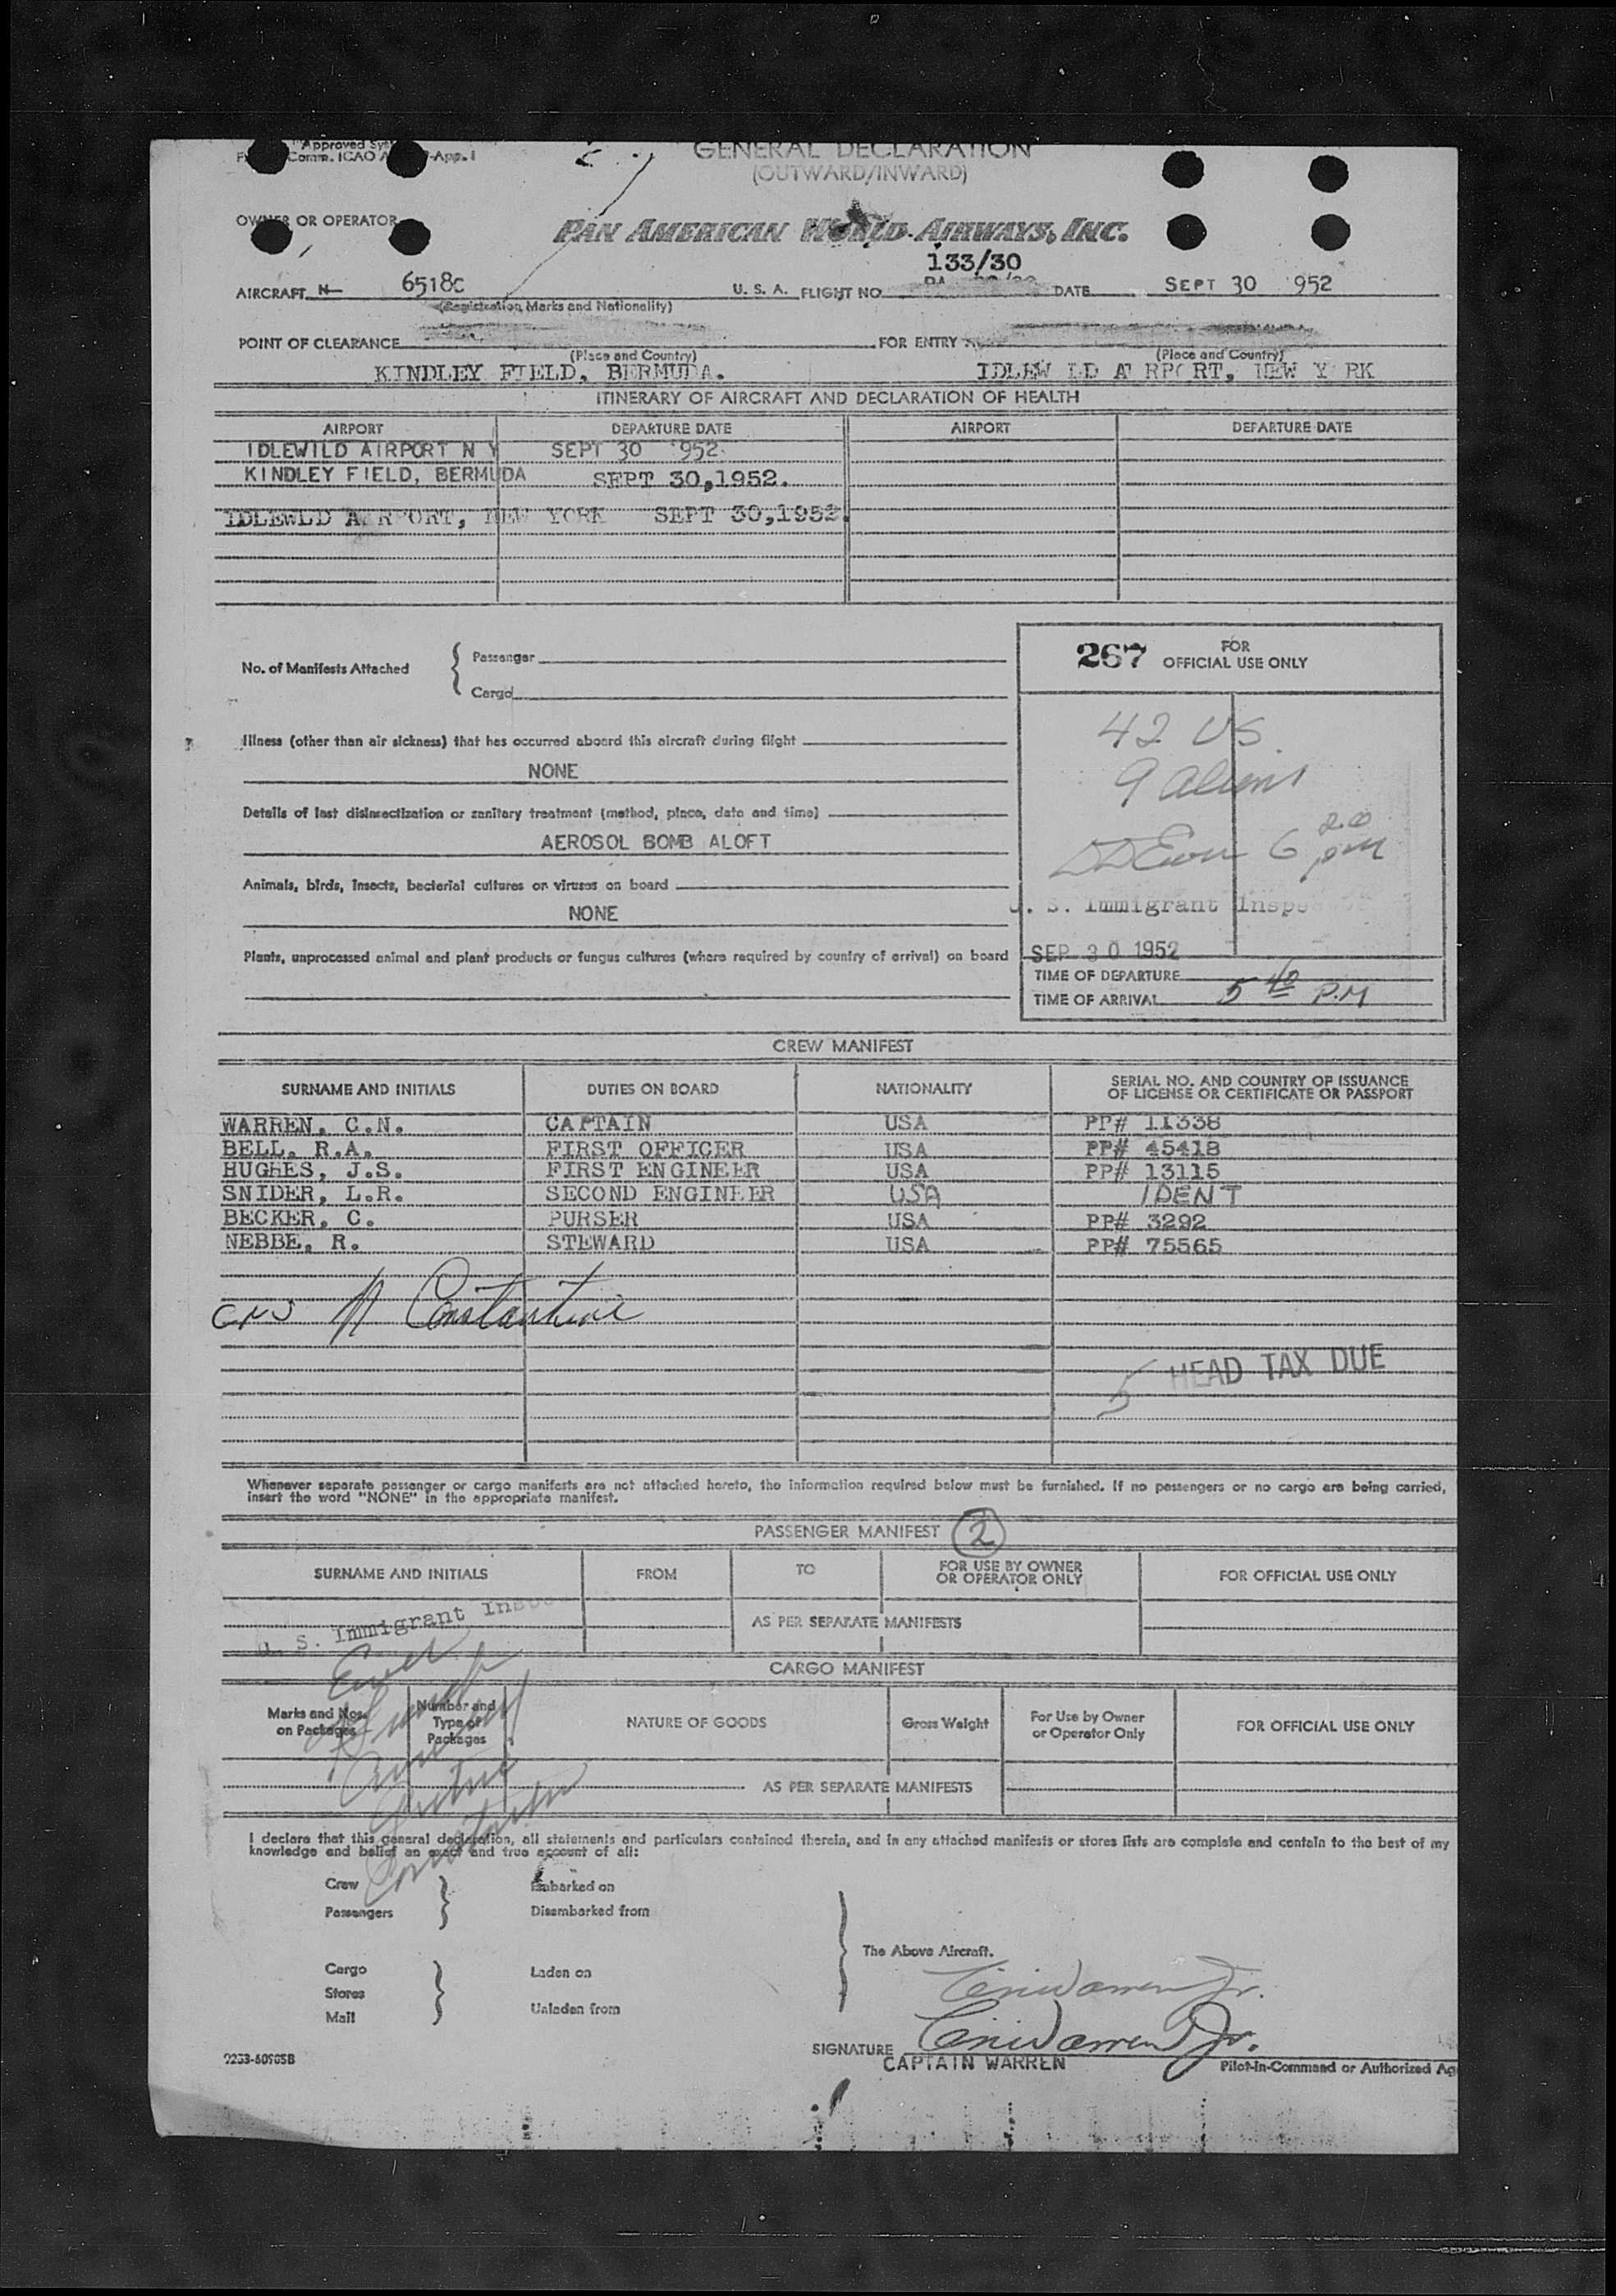 Approved
Comm. ICAO App. I
GENERAL DECLARATION
(OUTWARD/INWARD)
OWNER OR OPERATOR
PAN AMERICAN WORLD AIRWAYS, INC.
133/30
AIRCRAFT N 6518C U. S. A. FLIGHT NO. DATE SEPT 30 952
(Registration Marks and Nationality)
POINT OF CLEARANCE FOR ENTRY
(Place and Country) (Place and Country)
KINDLEY FIELD, BERMUDA. IDLEW LD A RPORT, NEW Y RK
ITINERARY OF AIRCRAFT AND DECLARATION OF HEALTH
AIRPORT DEPARTURE DATE AIRPORT DEPARTURE DATE
IDLEWILD AIRPORT N Y SEPT 30 952
KINDLEY FIELD, BERMUDA SEPT 30,1952.
IDLEWLD A RPORT, NEW YORK SEPT 30,1952.
267 FOR
OFFICIAL USE ONLY
No. of Manifests Attached { Passenger
Cargo
42 US.
9 aliens
Illness (other than air sickness) that has occurred aboard this aircraft during flight
NONE
Details of last disinsectization or sanitary treatment (method, place, date and time)
AEROSOL BOMB ALOFT
6 20 pm
Animals, birds, insects, bacterial cultures or viruses on board
NONE
. S. Immigrant Inspe
Plants, unprocessed animal and plant products or fungus cultures (where required by country of arrival) on board
SEP 30 1952
TIME OF DEPARTURE
TIME OF ARRIVAL 5 40 P.M
CREW MANIFEST
SURNAME AND INITIALS DUTIES ON BOARD NATIONALITY SERIAL NO. AND COUNTRY OF ISSUANCE
OF LICENSE OR CERTIFICATE OR PASSPORT
WARREN, C.N. CAPTAIN USA PP# 11338
BELL, R.A. FIRST OFFICER USA PP# 45418
HUGHES, J.S. FIRST ENGINEER USA PP# 13115
SNIDER, L.R. SECOND ENGINEER USA IDENT
BECKER, C. PURSER USA PP# 3292
NEBBE, R. STEWARD USA PP# 75565
Constantine
5 HEAD TAX DUE
Whenever separate passenger or cargo manifests are not attached hereto, the information required below must be furnished. If no passengers or no cargo are being carried,
insert the word "NONE" in the appropriate manifest.
PASSENGER MANIFEST 2
SURNAME AND INITIALS FROM TO FOR USE BY OWNER
OR OPERATOR ONLY FOR OFFICIAL USE ONLY
AS PER SEPARATE MANIFESTS
. S. Immigrant Ins
CARGO MANIFEST
Marks and Nos.
on Packages Number and
Type of
Packages NATURE OF GOODS Gross Weight For Use by Owner
or Operator Only FOR OFFICIAL USE ONLY
AS PER SEPARATE MANIFESTS
I declare that this general declaration, all statements and particulars contained therein, and in any attached manifests or stores lists are complete and contain to the best of my
knowledge and belief an exact and true account of all:
Crew Embarked on
Passengers Disembarked from
The Above Aircraft.
Cargo Laden on
Stores
Mail Unladen from
SIGNATURE
CAPTAIN WARREN Pilot-in-Command or Authorized Ag